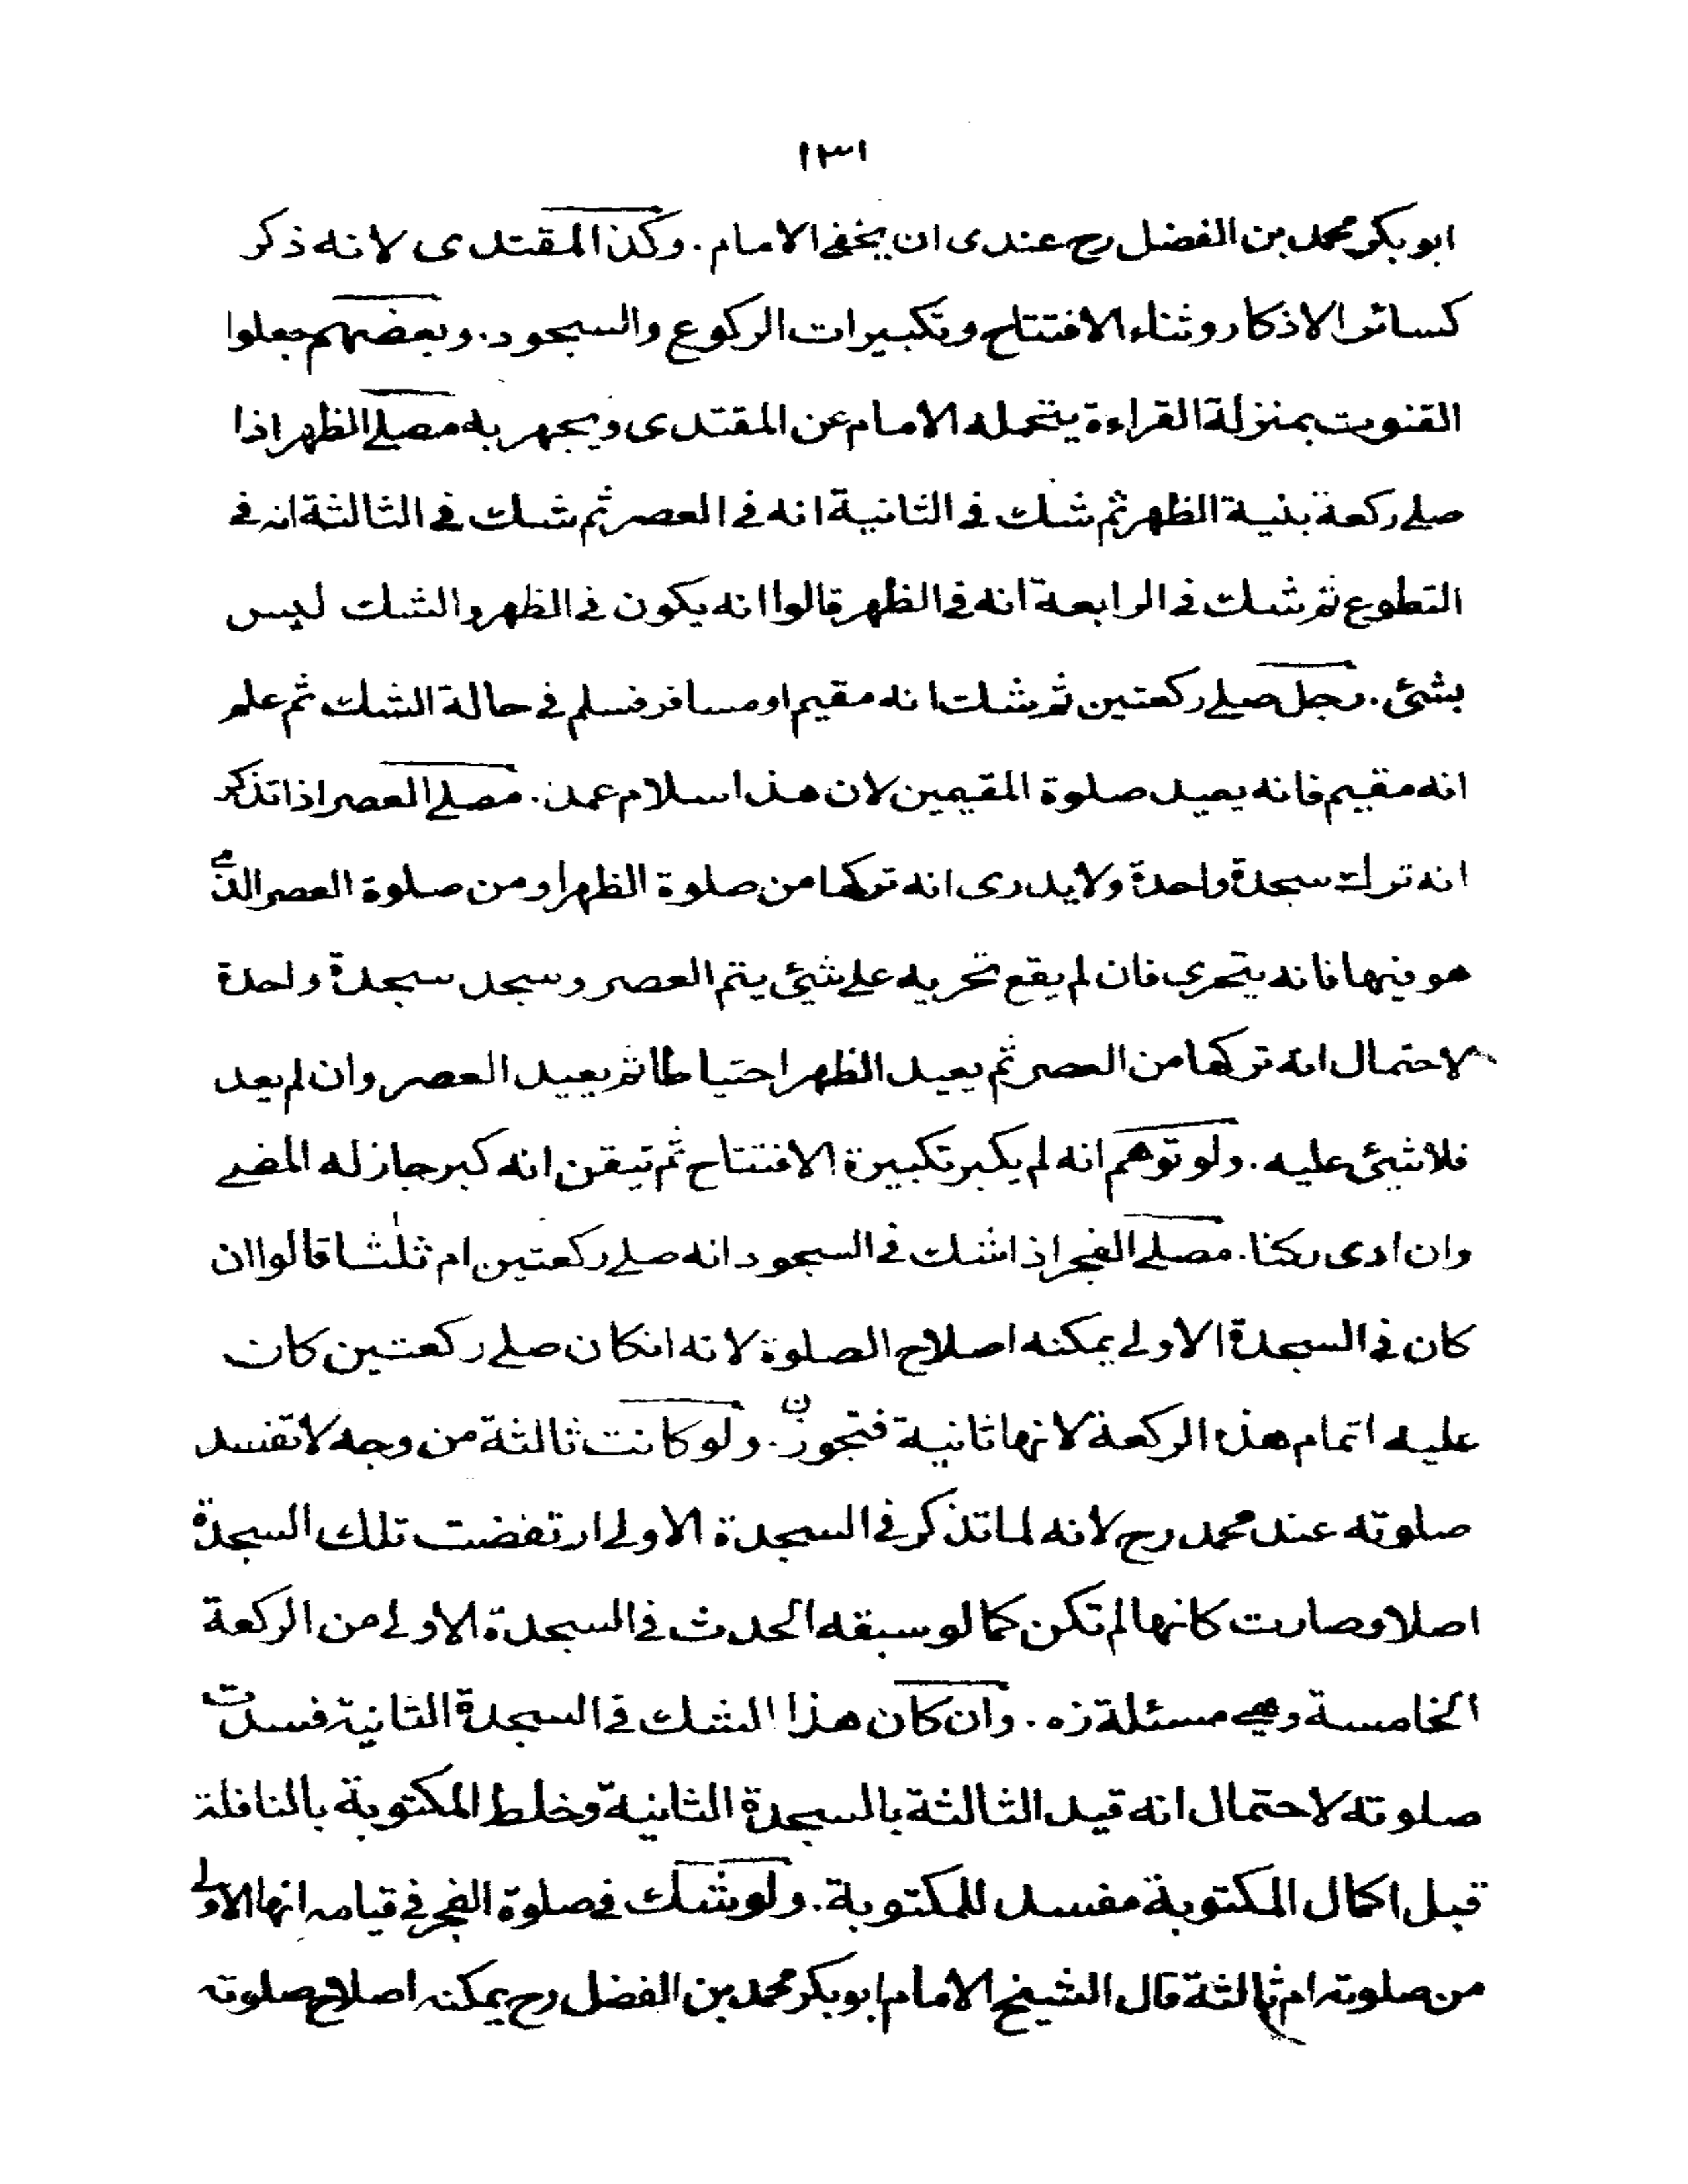 ١٣١
ابو بكر محمد بن الفضل رح عندى ان يخفى الامام. وكذا المقتدى لانه ذكر
كسائر الاذكار وثناء الافتتاح وتكبيرات الركوع والسجود. وبعضهم جعلوا
القنوت بمنزلة القراءة يتحمله الامام عن المقتدى ويجهر به مصلے الظهر اذا
صلے ركعة بنية الظهر ثم شك فى الثانية انه فى العصر ثم شك فى الثالثة انه فى
التطوع ثم شك فى الرابعة انه فى الظهر قالوا انه يكون فى الظهر والشك ليس
بشئ. رجل صلے ركعتين ثم شك انه مقيم او مسافر فسلم فى حالة الشك ثم علم
انه مقيم فانه يعيد صلوة المقيمين لان هذا سلام عمد. مصلے العصر اذا تذكر
انه ترك سجدة واحدة ولا يدرى انه تركها من صلوة الظهر او من صلوة العصر الذى
هو فيها فانه يتحرى فان لم يقع تحريه على شئ يتم العصر وسجد سجدة واحدة
لاحتمال انه تركها من العصر ثم يعيد الظهر احتياطا ثم يعيد العصر وان لم يعد
فلا شئ عليه. ولو توهم انه لم يكبر تكبيرة الافتتاح ثم تيقن انه كبر جاز له المضے
وان ادى ركنا. مصلے الفجر اذا شك فى السجود انه صلے ركعتين ام ثلٰثا قالوا ان
كان فى السجدة الاولى يمكنه اصلاح الصلوة لانه انكان صلے ركعتين كان
عليه اتمام هذه الركعة لانها ثانية فتجوز. ولو كانت ثالثة من وجه لا تفسد
صلوته عند محمد رح لانه لما تذكر فى السجدة الاولى ارتفضت تلك السجدة
اصلا وصارت كانها لم تكن كما لو سبقه الحدث فى السجدة الاولى من الركعة
الخامسة وهے مسئلة زه. وان كان هذا الشك فى السجدة الثانية فسدت
صلوته لاحتمال انه قيد الثالثة بالسجدة الثانية وخلط المكتوبة بالنافلة
قبل اكمال المكتوبة مفسد للمكتوبة. ولو شك فى صلوة الفجر فى قيامه انها الاولى
من صلوته ام ثالثة قال الشيخ الامام ابو بكر محمد بن الفضل رح يمكنه اصلاح صلوته